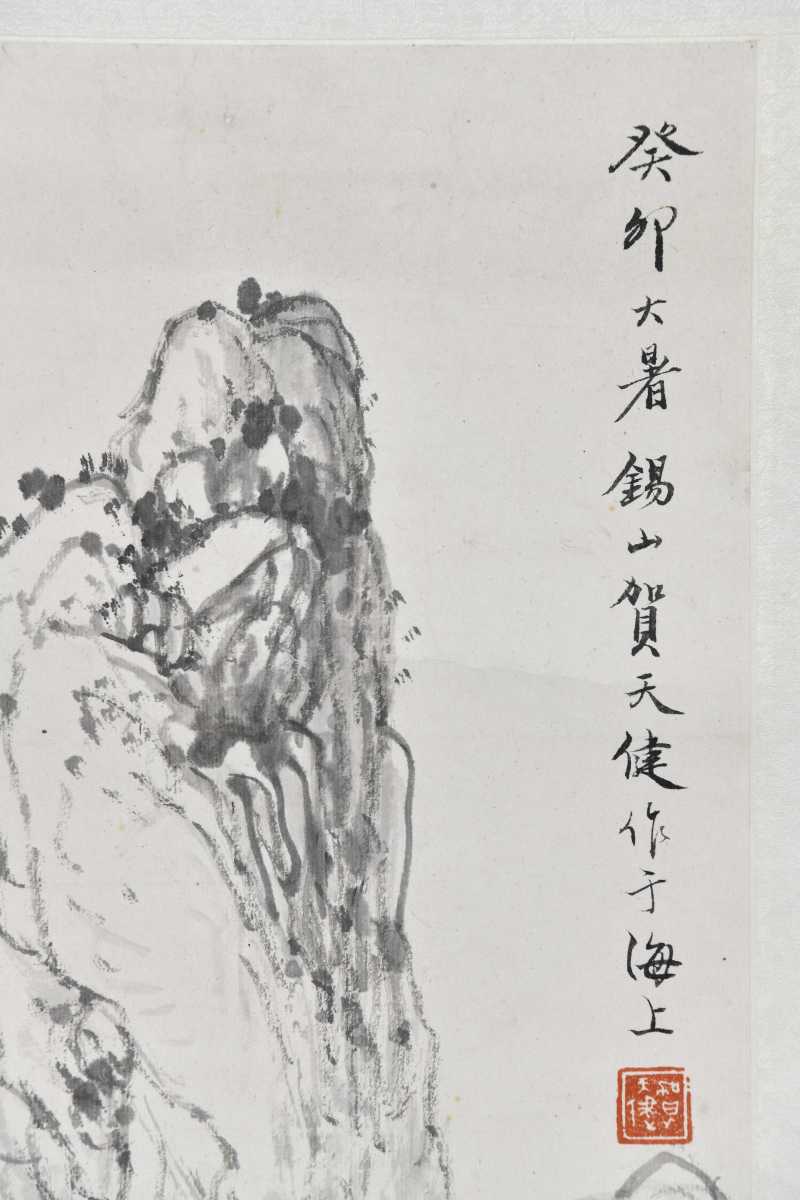 癸卯大暑錫山賀天健作于海上
賀天健